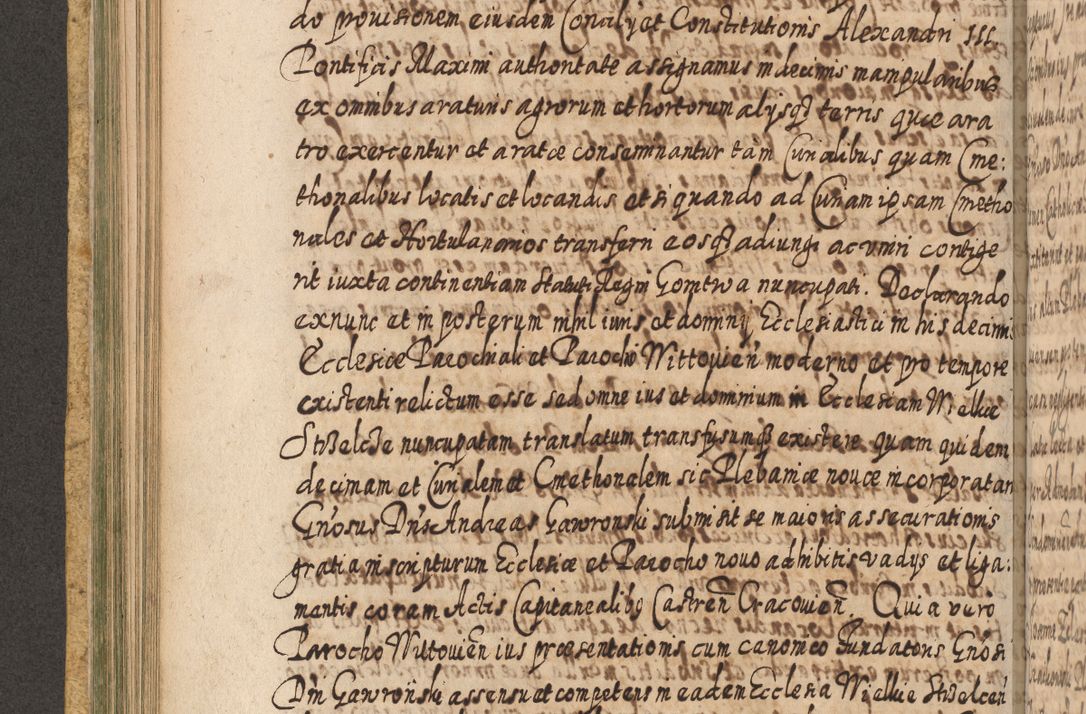 do provisionem eiusdem Concilij et Constitutionis Alexandri III
Pontificis Maximi authoritate assignamus in decimis manipularibus
ex omnibus araturis agrorum et hortorum alijsq terris quæ ara
tro exercentur et aratæ conseminantur tam Curialibus quam Cme:
thonalibus locatis et locandis et si quando ad Curiam ipsam Cmetho
nales et Hortulanarios transferri eosq adiungi ac vniri contige
rit iuxta continentiam Statuti Regni Gomtwa nuncupati. Declarando
ex nunc et in posterum nihil iuris et dominij Ecclesiastici in his decimis
Ecclesiæ Parochiali et Parocho Wittovień moderno et pro tempore
existenti relictum esse sed omne ius et dominium in Ecclesiam Wielkie
Strzelcze nuncupatam translatum transfusumq existere quam quidem
decimam et Curialem et Cmethonalem sic Plebaniæ novæ incorporatam
Gnosus Dnse Andreas Gawronski submisit se maioris assecurationis
gratia inscripturum Ecclesiæ et Parocho novo adhibitis vadijs et liga:
mentis coram Actis Capitanealibq Castreń Cracovień. Quia vero
Parocho Wittovień ius præsentationis cum canonico Fundatoris Gnosi
Dni Gawroński assensu et competens in eadem Ecclesia Wielkie Strzelcen